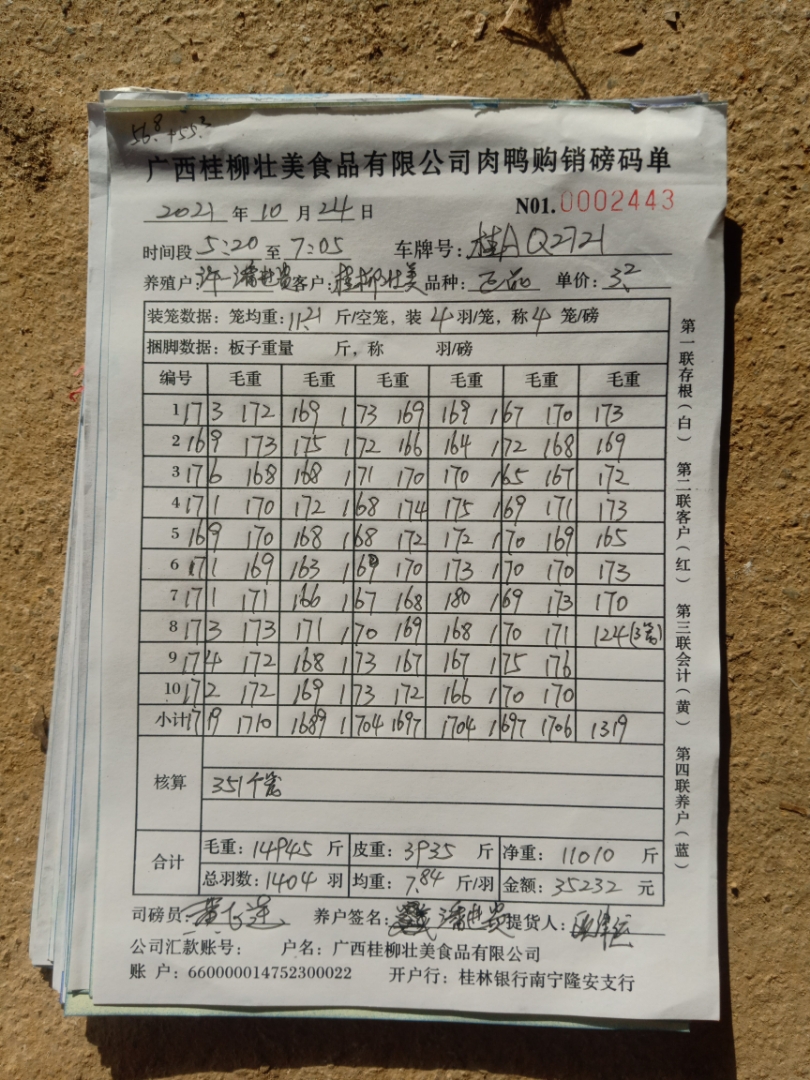 56.8 + 55.3
广西桂柳壮美食品有限公司肉鸭购销磅码单
2021 年 10 月 24 日 N01.0002443
时间段 5:20 至 7:05 车牌号: 桂A Q2721
养殖户: 客户: 桂柳壮美 品种: 正品 单价: 3.2
装笼数据: 笼均重: 11.21 斤/空笼, 装 4 羽/笼, 称 4 笼/磅
捆脚数据: 板子重量 斤, 称 羽/磅
编号 毛重 毛重 毛重 毛重 毛重 毛重
1 173 172 169 173 169 169 167 170 173
2 169 173 175 172 166 164 172 168 169
3 176 168 168 171 170 170 165 167 172
4 171 170 172 168 174 175 169 171 173
5 169 170 168 168 172 172 170 169 165
6 171 169 163 169 170 173 170 170 173
7 171 171 166 167 168 180 169 173 170
8 173 173 171 170 169 168 170 171 124(3笼)
9 174 172 168 173 167 167 175 176
10 172 172 169 173 172 166 170 170
小计 1719 1710 1689 1704 1697 1704 1697 1706 1319
核算 351个笼
合计 毛重: 14945 斤 皮重: 3935 斤 净重: 11010 斤
总羽数: 1404 羽 均重: 7.84 斤/羽 金额: 35232 元
司磅员: 养户签名: 提货人:
公司汇款账号: 户名: 广西桂柳壮美食品有限公司
账 户: 660000014752300022 开户行: 桂林银行南宁隆安支行
第一联存根(白) 第二联客户(红) 第三联会计(黄) 第四联养户(蓝)